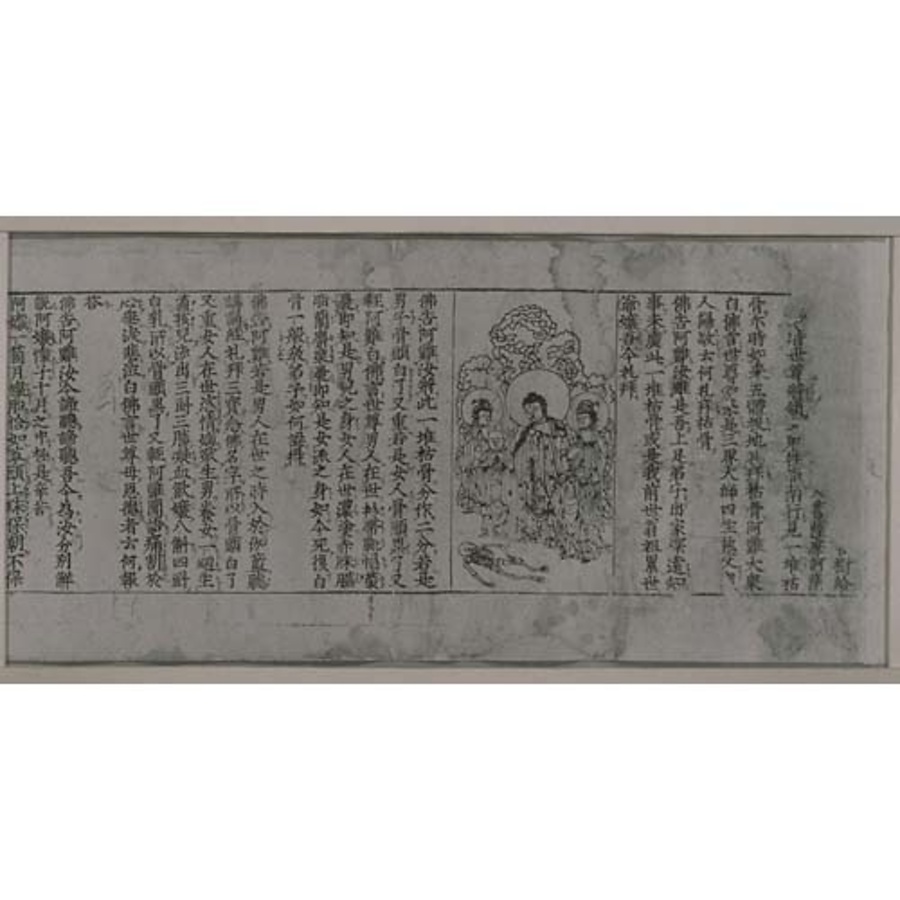 時世尊將領大衆 南行見一堆枯
骨尒時如来五體投地礼拜枯骨阿難大衆
白佛言世尊如来是三界大師四生慈父
人歸敬云何礼拜枯骨
佛告阿難汝雖是吾上足弟子出家深遠知
事未廣此一堆枯骨或是我前世翁祖累世
爺孃吾今礼拜
佛告阿難汝將此一堆枯骨分作二分若是
男子骨頭白了又重若是女人骨頭黑了又
輕阿難白佛言世尊男人在世衫帶鞋帽
即知是男兒之身女人在世濃塗赤硃臙
脂蘭麝裛即知是女流之身如今死後白
骨一般教弟子如何認得
佛告阿難若是男人在世之時入於伽藍聽
講誦經礼拜三寶念佛名字所以骨頭白了
又重女人在世恣情婬欲生男養女一廻生
箇孩兒流出三㪷三勝凝血飲孃八斛四㪷
白乳所以骨頭黑了又輕阿難聞語痛割於
心垂淚悲泣白佛言世尊母恩德者云何報
荅
佛告阿難汝今諦聽諦聽吾今為汝分別解
說阿孃懷子十月之中極是辛苦
阿孃一箇月懷胎恰如草頭上珠保朝不保